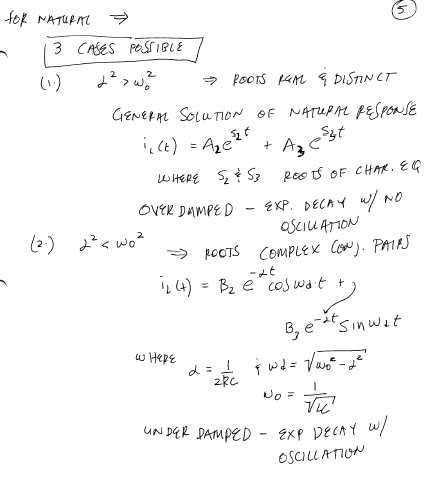 5
FOR NATURAL ⇒
3 CASES POSSIBLE
(1.) α² > ω₀² ⇒ ROOTS REAL & DISTINCT
GENERAL SOLUTION OF NATURAL RESPONSE
i_L(t) = A₂e^{S₂t} + A₃e^{S₃t}
WHERE S₂ & S₃ ROOTS OF CHAR. EQ
OVERDAMPED - EXP. DECAY W/ NO
OSCILLATION
(2.) α² < ω₀² ⇒ ROOTS COMPLEX CONJ. PAIRS
i_L(t) = B₂ e^{-αt} cos ωd t +
B₃ e^{-αt} Sin ωd t
WHERE α = 1/2RC & ωd = √(ω₀² - α²)
ω₀ = 1/√LC
UNDER DAMPED - EXP DECAY W/
OSCILLATION